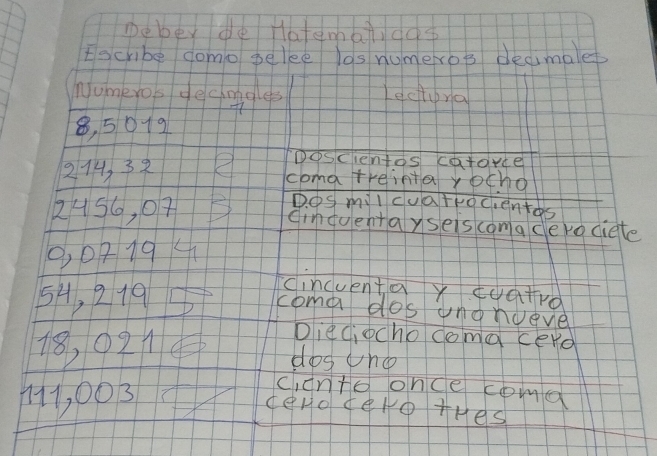 Deber de Matematicas
Escribe como selee los numeros decimales
Numeros decimales Lectura
8,5019 1
214,32 2 Doscientos catorce
coma treinta y ocho
2456,07 3 Dos mil cuatrocientos
cincuenta y seis coma cero ciete
0,0719 4
54,219 5 cincuenta y cuatro
coma dos uno nueve
18,021 6 Dieciocho coma cero
dos uno
111,003 7 ciento once coma
cero cero tres